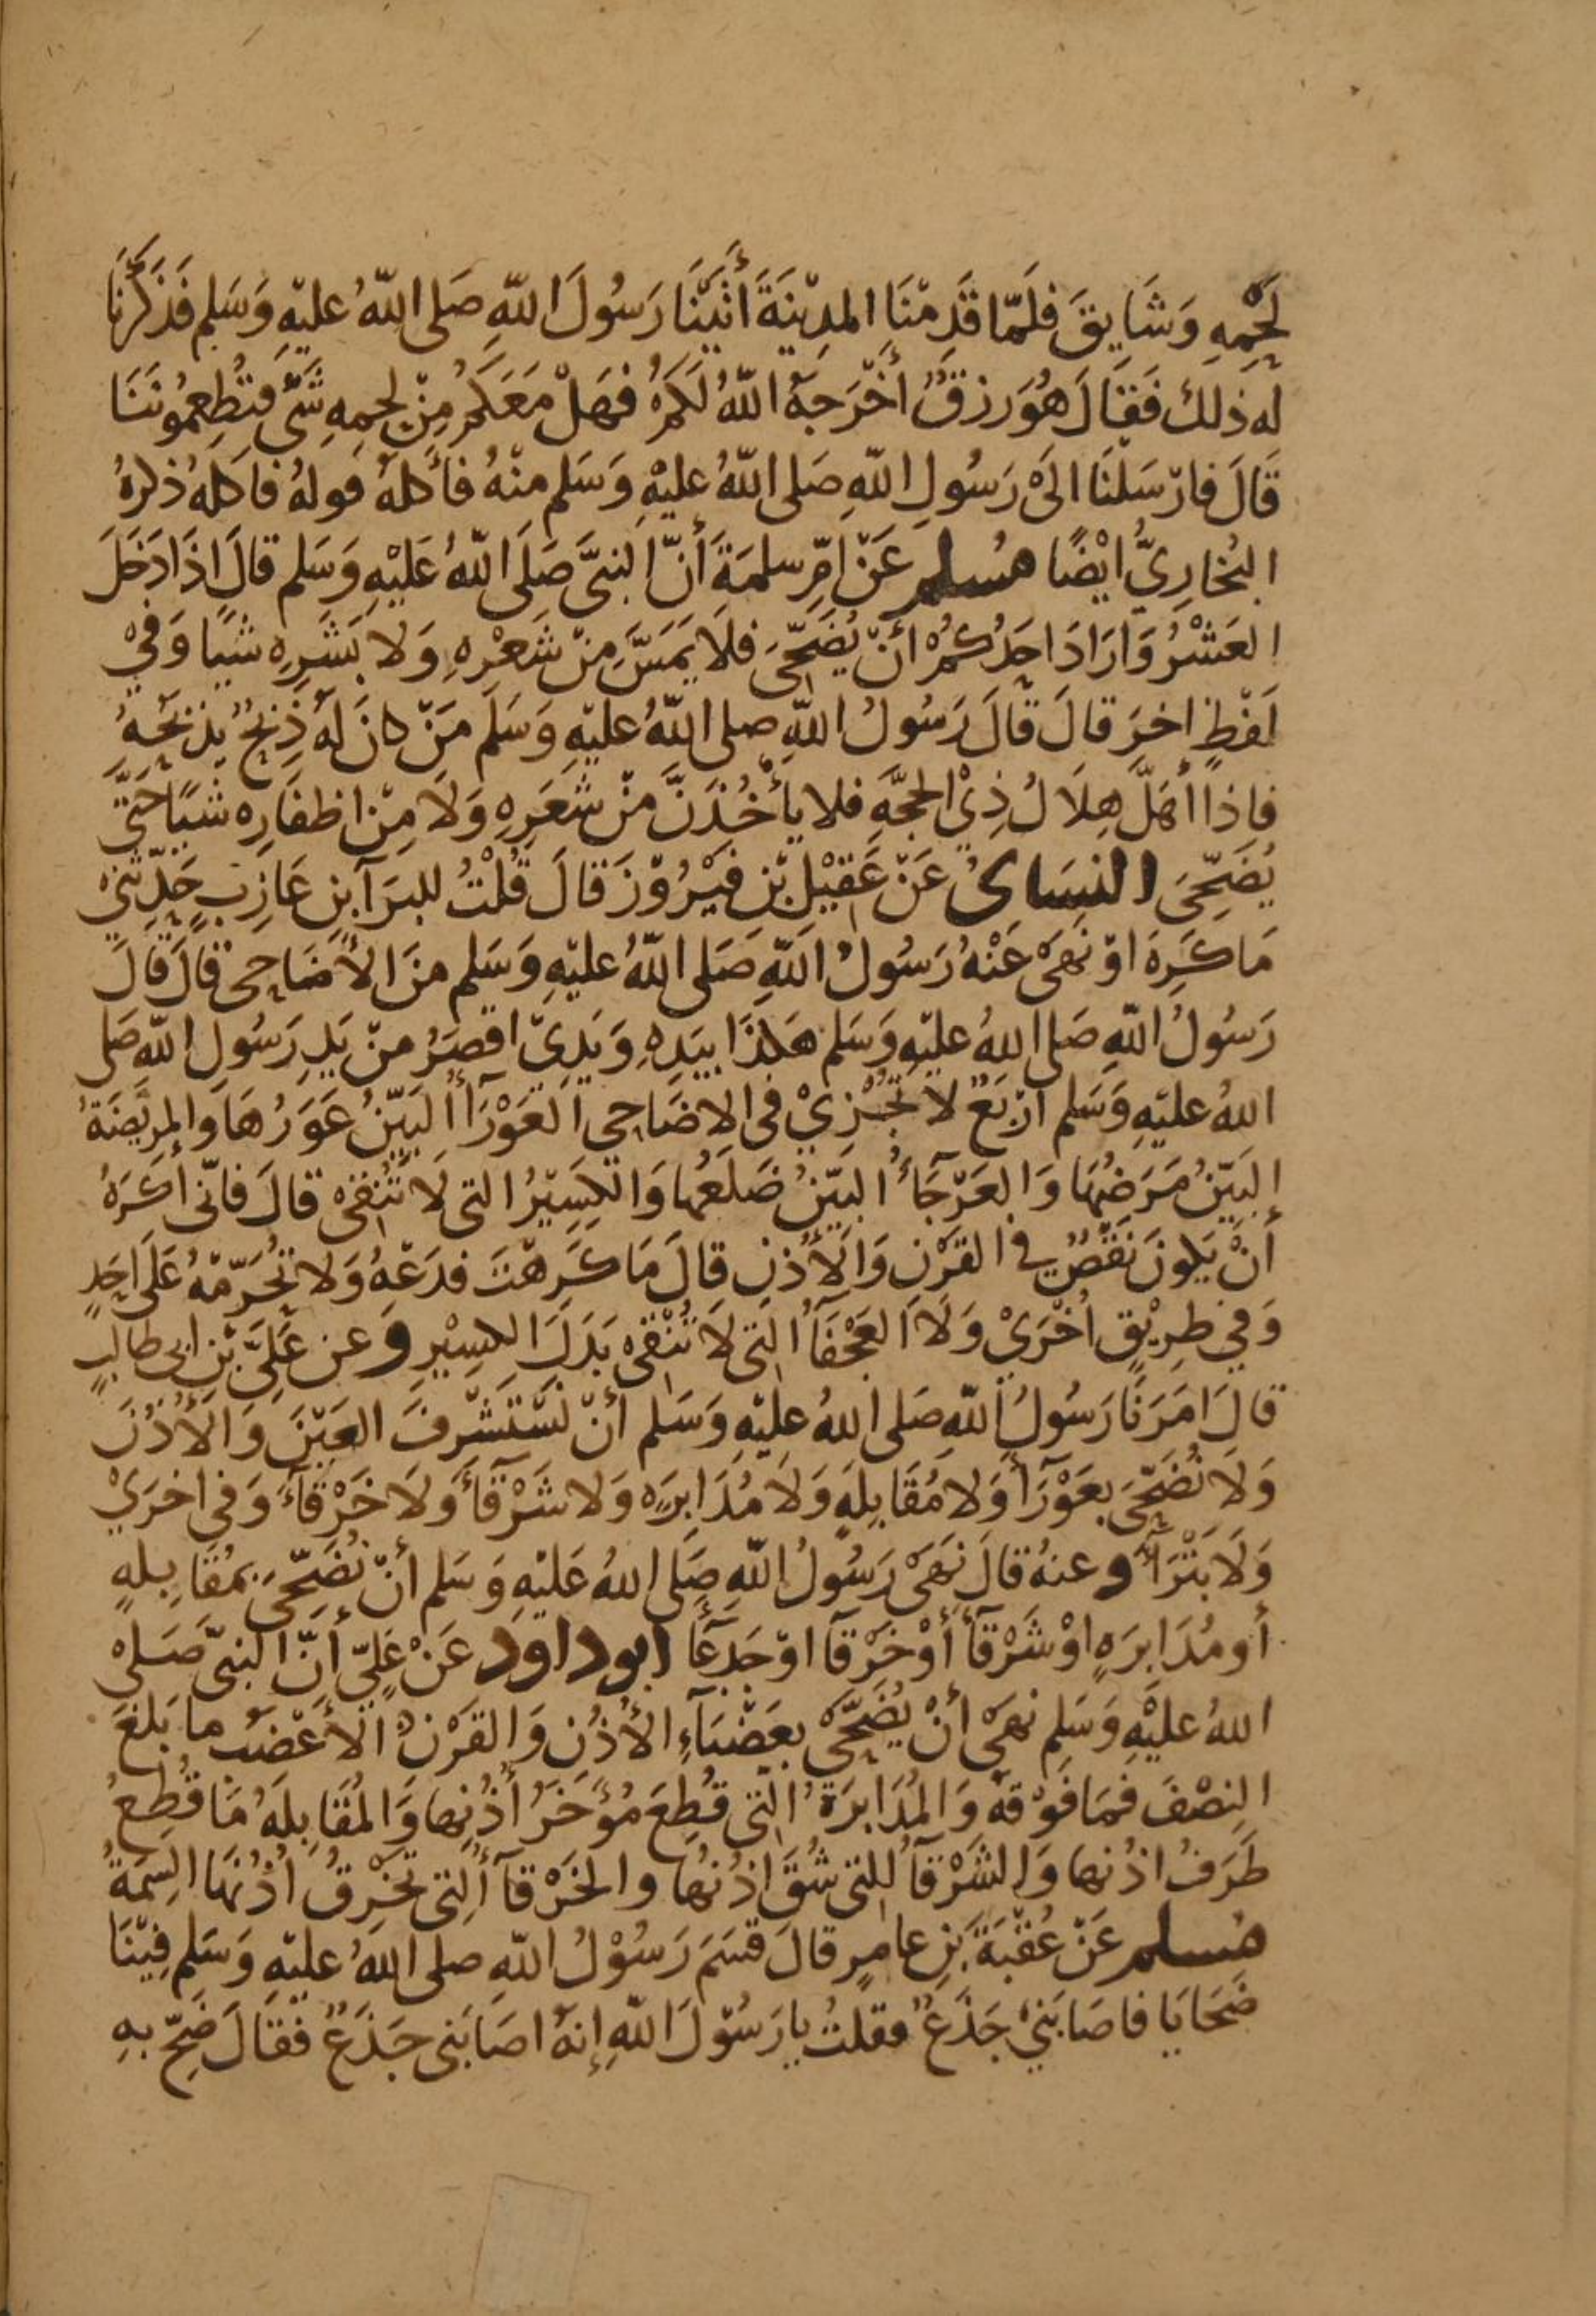 لَحْمِهِ وَشَايِقَ فَلَمّا قَدِمْنَا المدِيْنَةَ أَتَيْنَا رَسُولَ اللهِ صَلى اللهُ عليْهِ وَسَلم فَذَكَرْنَا
له ذلك فَقَالَ هُوَ رِزقٌ أَخْرَجَهُ اللهُ لَكُمْ فهَلْ مَعَكمْ مِنْ لحمِهِ شَىْ فتُطعِمُونَنَا
قَالَ فارْسَلْنَا الَىْ رَسُولِ اللهِ صَلى اللهُ عليْهِ وَسَلم منْهُ فأكلهُ قولهُ فاكلَهُ ذكرهُ
البُخارِيُّ ايْضًا مُسلم عَنْ امّ سلمَةَ أَنّ النبىَّ صَلَى اللهُ عَلَيْهِ وَسَلم قالَ اذَا دَخَلَ
العَشْرُ وَارَادَ احَدُكُمْ أنْ يُضَحّىَ فلَا يَمَسَّ مِنْ شَعْرِهِ وَلا بَشَرِهِ شيًا وَفىْ
لَفْظٍ اخرَ قالَ قالَ رَسُولُ اللهِ صلى اللهُ عليْهِ وَسَلَم مَنْ كانَ لَهُ ذِبْحٌ يذبَحُهُ
فاذا أهَلّ هِلَالُ ذِيْ الحجَّهِ فلا يأْخُذَنَّ منْ شَعَرِهِ وَلَا مِنْ اظفَارِه شيًا حَتّى
يُضَحّىَ النسَاىُ عَنْ عَقِيْلِ بْنِ فيْرُوْزَ قالَ قُلْتُ للبرَآ بنِ عَازِبٍ حَدِّثنِىْ
مَا كَرِهَ اوْ نهَىْ عَنْهُ رَسُولُ اللهِ صَلى اللهُ عليْهِ وَسَلم منَ الأَضَاحى قالَ قالَ
رَسُولُ اللهِ صَلى اللهُ عليْهِ وَسَلم هَكذَا بيَدِهِ وَيَدِىْ اقصَرُ منْ يَدِ رَسُولِ اللهِ صَلى
اللهُ عليْهِ وَسَلم ارْبَعٌ لا تُجْزِيْ فى الاضَاحى العَوْرَأُ البَيّنُ عَوَرُهَا وَالمرِيْضَةُ
البَيّنُ مَرَضُهَا وَالعَرْجَآءُ البَيّنُ ضَلَعُها وَالكسِيْرُ التى لَا تُنقىْ قالَ فانّى أكرَهُ
أَنْ يَكونَ نَقْصٌ فى القرْنِ وَالأُذنِ قالَ مَا كَرهْتَ فدَعْهُ وَلا تُحَرّمْهُ عَلَى احَدٍ
وَفي طرِيْقٍ أُخْرَىْ وَلَا العَجْفَآُ التى لَا تُنْقىْ بَدَلَ الكسِيْرِ وعن عَلِىّ بْنِ ابى طالبٍ
قالَ امَرَنَا رَسُولُ اللهِ صَلى اللهُ عليْهِ وَسَلم أنْ نَسْتَشْرِفَ العَيْنَ وَالأُذُنَ
وَلَا نُضَحّىَ بعَوْرَآ وَلا مُقَابلَهٍ وَلَا مُدَابرَهٍ وَلا شَرْقآَ وَلَا خَرْقآءَ وَفى اخرَىْ
وَلَا بَتْرَآ وعنهُ قالَ نَهَىْ رَسُولُ اللهِ صَلى اللهُ عَليْهِ وَسَلم أنْ نُضَحّىَ بمُقَابِلهٍ
أو مُدَابرَهٍ اوْ شَرْقآ أوْ خَرْقآ اوْ جَدعَآ ابوداود عَنْ عَلِيّ أَنّ النبىّ صَلىْ
اللهُ عليْهِ وَسَلم نهَىْ أنْ يُضَحّىْ بعَضْبَآءِ الأُذُنِ وَالقَرْنِ الأعْضَبُ ما بَلغَ
النِصْفَ فمَا فَوْقهُ وَالمُدَابرَةُ التى قُطِعَ مُؤَخَرُ أُذُنِها وَالمُقَابلَهُ مَا قُطِعُ
طَرَفُ اذُنها وَالشَرْقآُ التى شُقَ اذُنُها والخَرْقآُ التى تخرِقُ أُذُنَهَا السِمَةُ
مُسلم عَنْ عُقْبَةَ بْنِ عامرٍ قالَ قَسَمَ رَسُوْلُ اللهِ صلى اللهُ عليْهِ وَسَلم فِيْنَا
ضَحَايَا فاصَابَنيْ جَذَعٌ فقلتُ يا رَسُوْلَ اللهِ إنهُ اصَابَنى جَذَعٌ فقَالَ ضَحّ بهِ